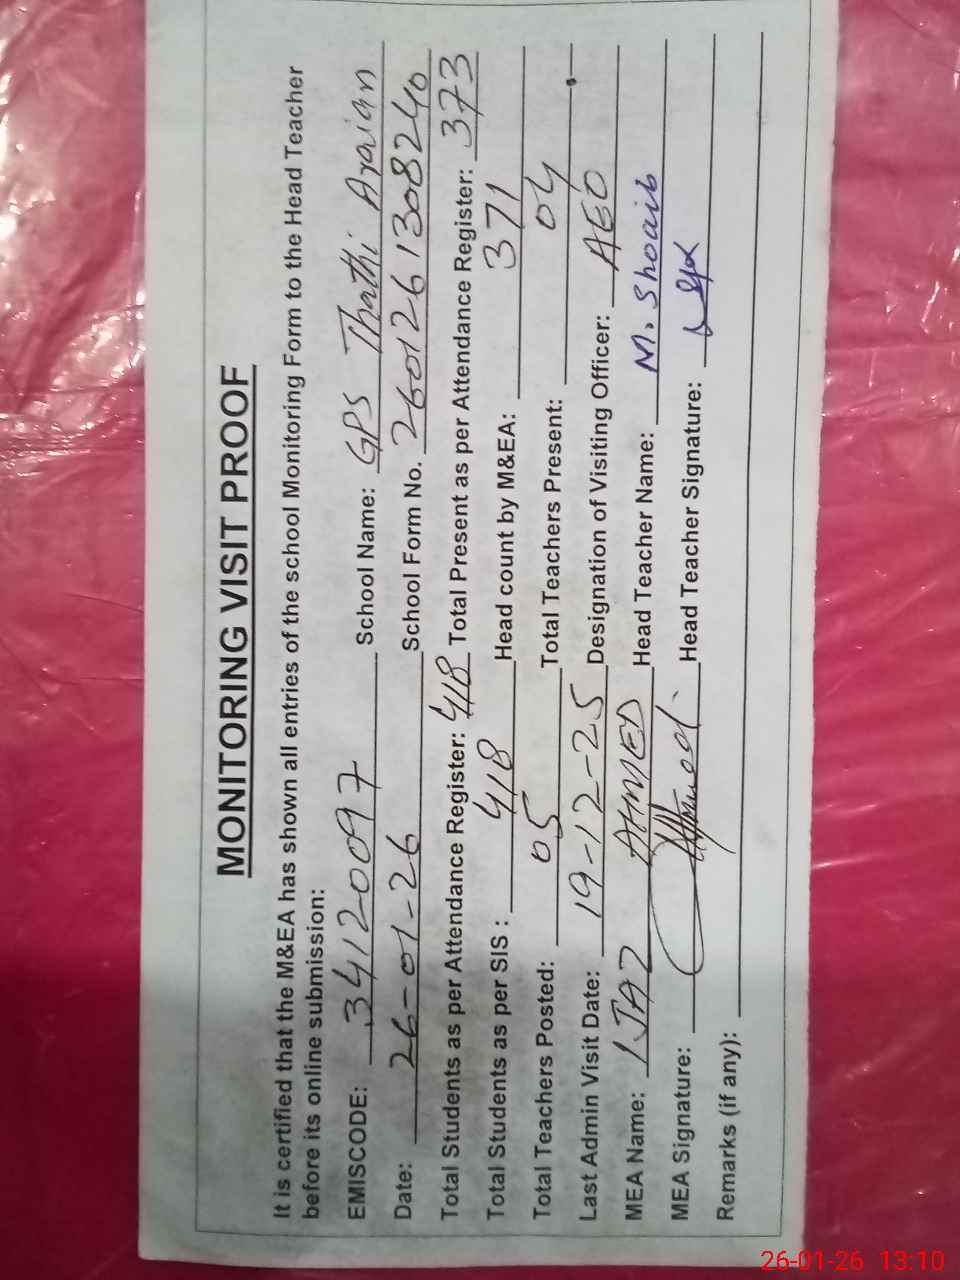 MONITORING VISIT PROOF
It is certified that the M&EA has shown all entries of the school Monitoring Form to the Head Teacher
before its online submission:
EMISCODE: 34120097 School Name: GPS Thathi Araian
Date: 26-01-26 School Form No. 260126130824o
Total Students as per Attendance Register: 418 Total Present as per Attendance Register: 373
Total Students as per SIS : 418 Head count by M&EA: 371
Total Teachers Posted: 05 Total Teachers Present: 04
Last Admin Visit Date: 19-12-25 Designation of Visiting Officer: AEO
MEA Name: IJAZ AHMED Head Teacher Name: M. Shoaib
MEA Signature: Head Teacher Signature:
Remarks (if any):
26-01-26 13:10